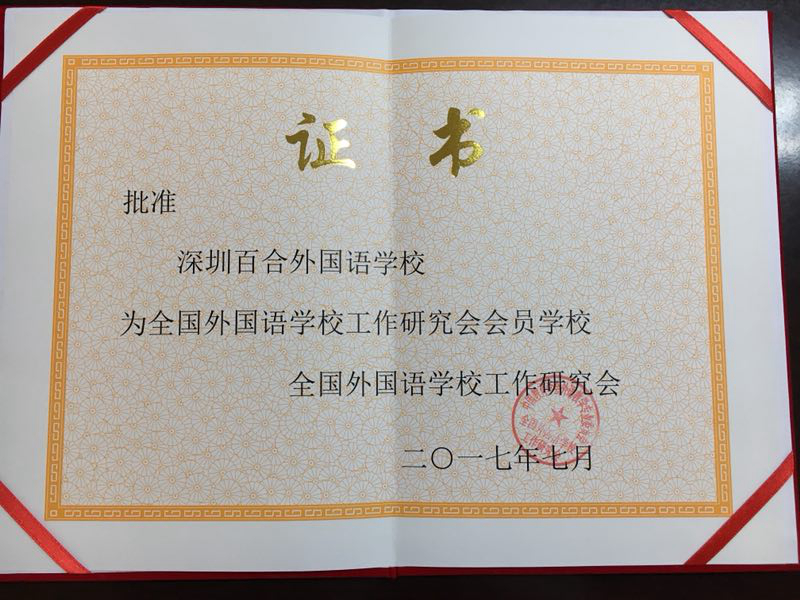 证书
批准
深圳百合外国语学校
为全国外国语学校工作研究会会员学校
全国外国语学校工作研究会
二〇一七年七月